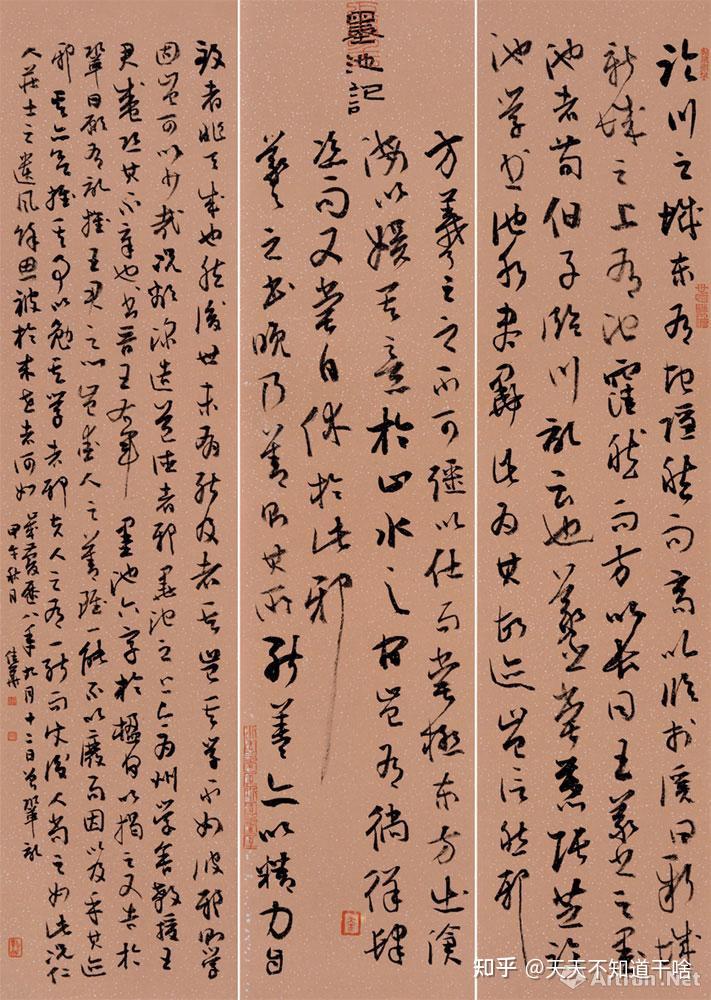 墨池記
臨川之城東有地隱然而高以臨於溪曰新城
新城之上有池窪然而方以長曰王羲之之墨
池者荀伯子臨川記云也羲之嘗慕張芝臨
池學書池水盡黑此為其故跡豈信然邪
方羲之之不可彊以仕而嘗極東方出滄
海以娛其意於山水之間豈有徜徉肆
恣而又嘗自休於此邪
羲之書晚乃善則其所能蓋亦以精力自
致者非天成也然後世未有能及者其豈其學不如彼邪則學
固豈可以少哉況欲深造道德者邪墨池之上今為州學舍教授王
君盛恐其不章也書晉王右軍墨池六字於楹間以揭之又告於
鞏曰願有記推王君之心豈愛人之善雖一能不以廢而因以及乎其跡
邪其亦欲推其事以勉其學者邪夫人之有一能而使後人尚之如此況仁
人莊士之遺風餘思被於來世者何如哉慶曆八年九月十二日曾鞏記
甲午秋月
知乎 @天天不知道干啥
Artron.Net